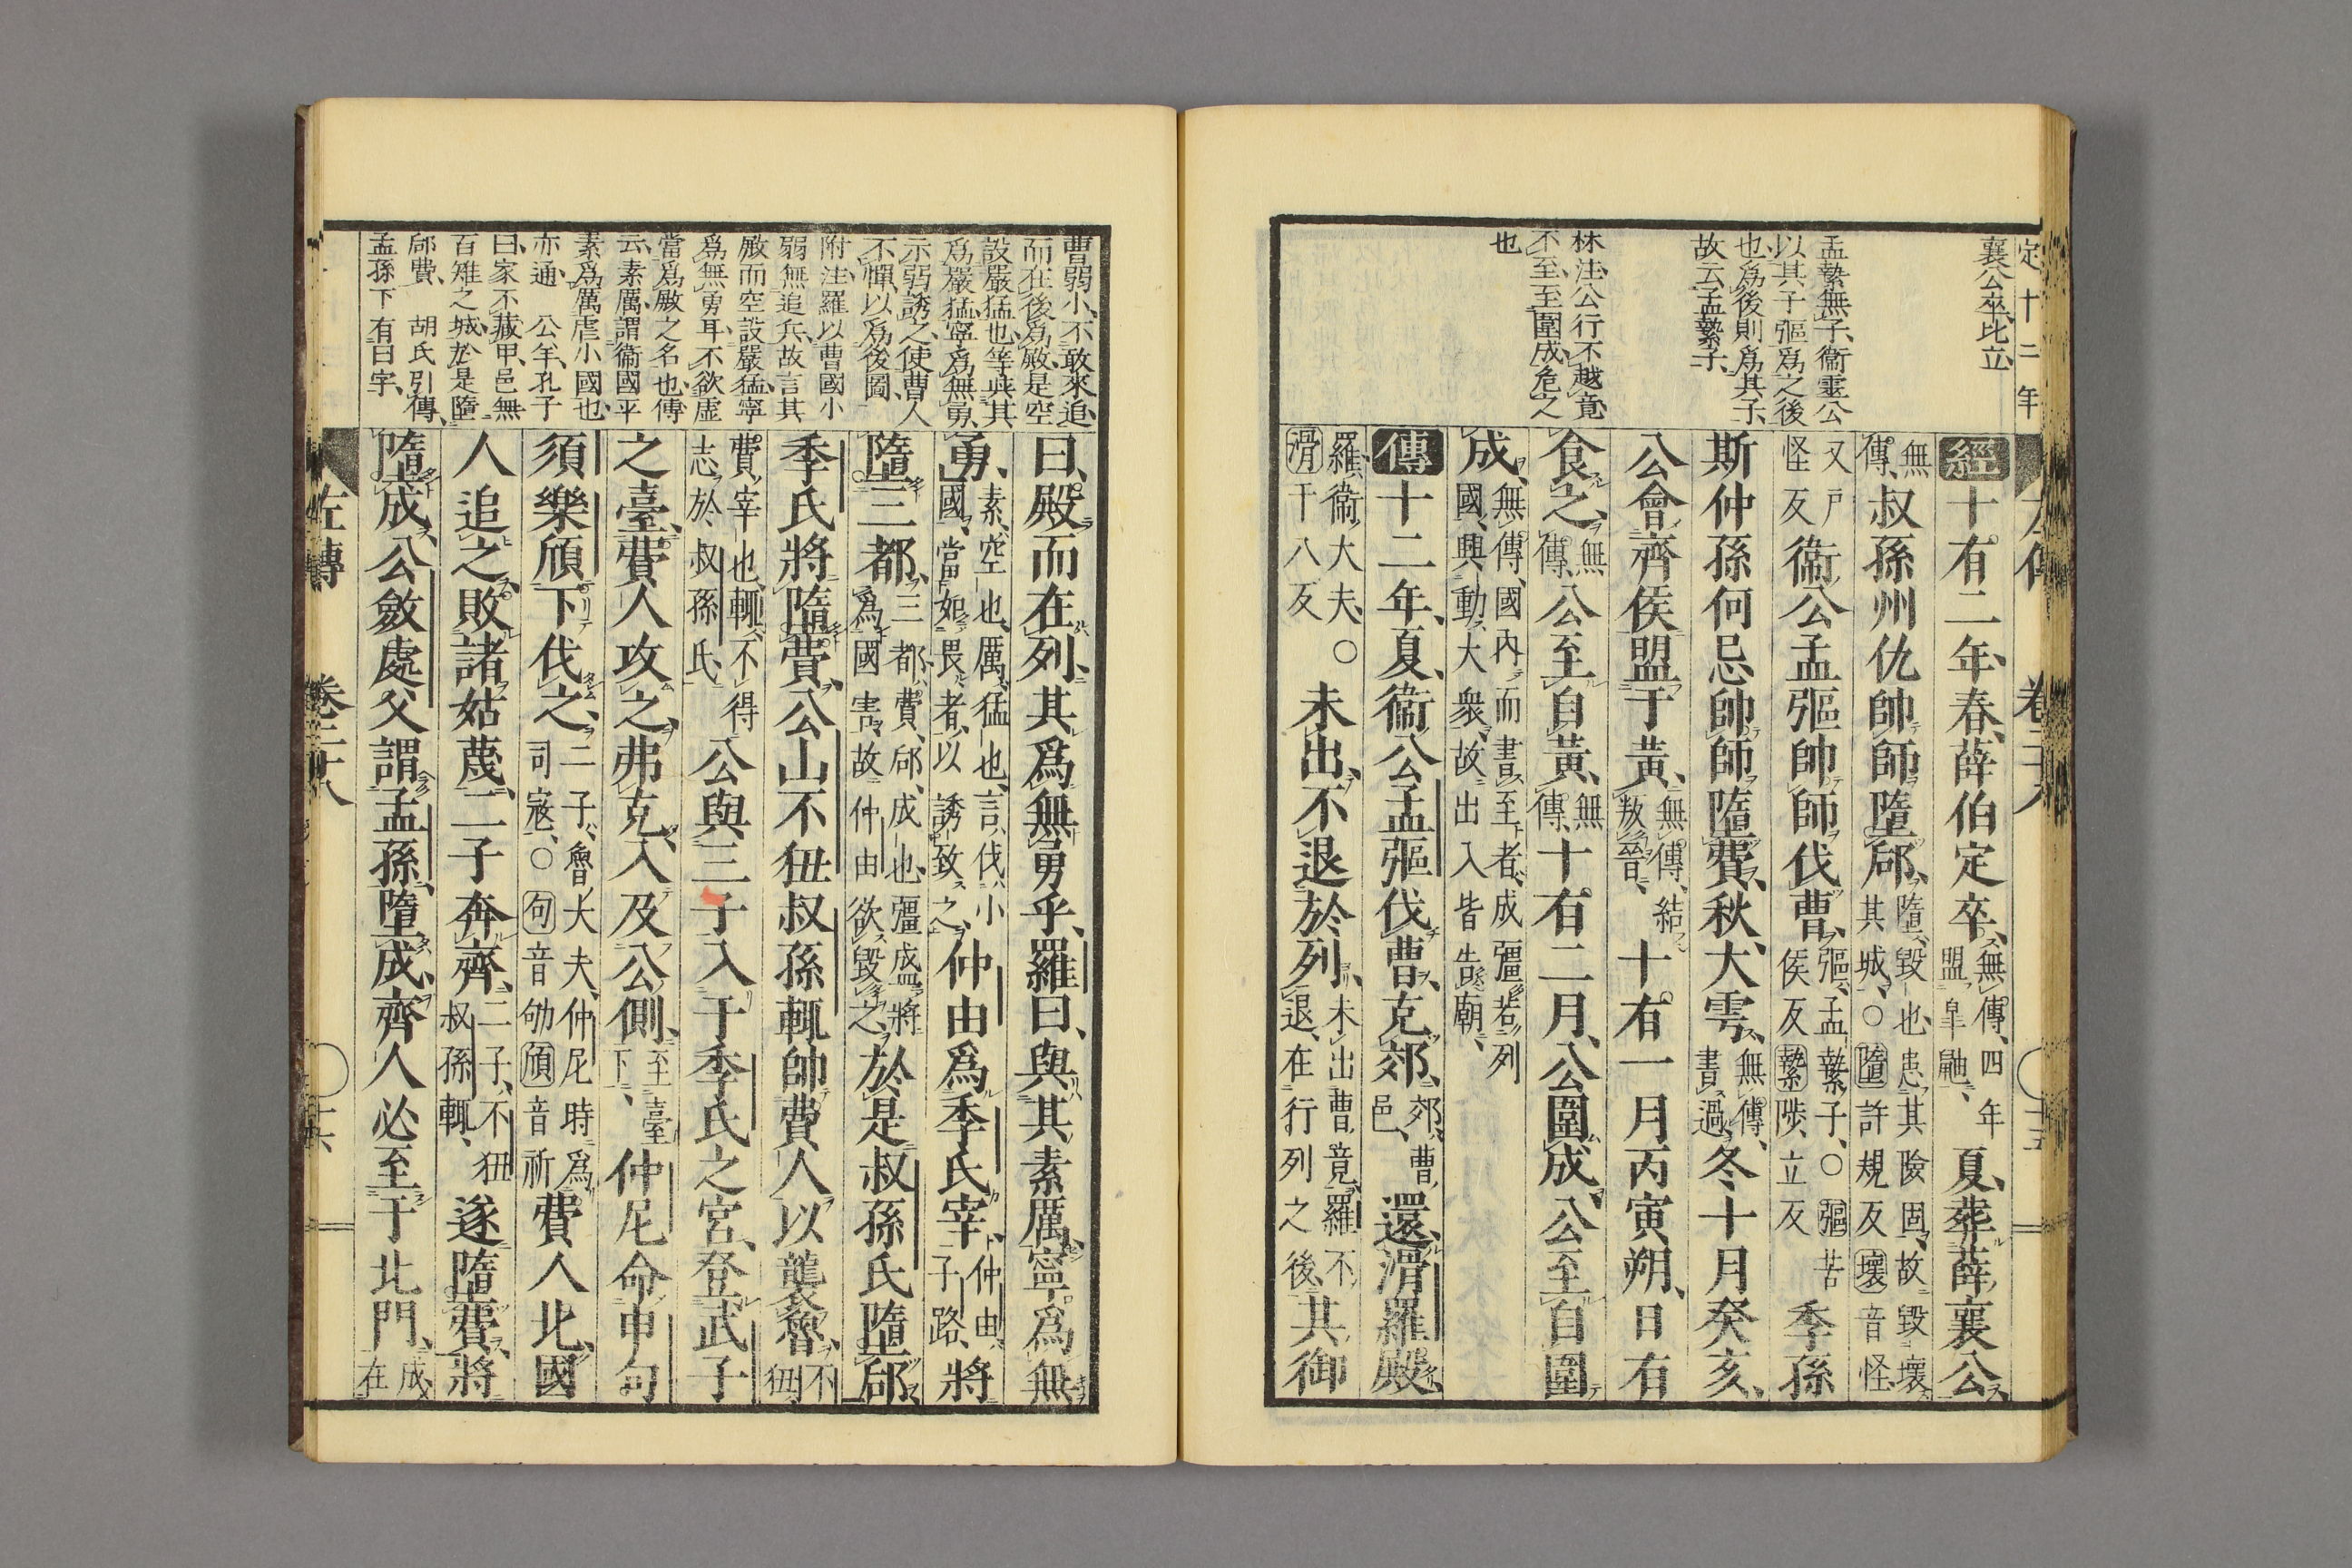 定十二年
襄公卒比立
孟縶無子衞靈公
以其子彄爲之後
也爲後則爲其子
故云孟縶子
林注公行不越竟
不至至圍成危之
也
經十有二年春薛伯定卒無傳四年盟皐鼬夏葬薛襄公
無傳叔孫州仇帥師墮郈墮毀也患其險固故毀壞其城〇墮許規反壞音怪
又戶怪反衞公孟彄帥師伐曹彄孟縶子〇彄苦侯反縶陟立反季孫
斯仲孫何忌帥師墮費秋大雩無傳書過冬十月癸亥
公會齊侯盟于黃無傳結叛晉十有一月丙寅朔日有
食之無傳公至自黃無傳十有二月公圍成公至自圍
成無傳國內而書至者成彊若列國興動大衆故出入皆告廟
傳十二年夏衞公孟彄伐曹克郊郊曹邑還滑羅殿
羅衞大夫〇滑干八反未出不退於列未出曹竟羅不退在行列之後其御
左傳 卷二十八 十五
曹弱小不敢來追
而在後爲殿是空
設嚴猛也等與其
爲嚴猛寧爲無勇
示弱誘之使曹人
不憚以爲後圖
附注羅以曹國小
弱無追兵故言其
殿而空設嚴猛寧
爲無勇耳不欲虛
當爲殿之名也傳
云素厲謂衞國平
素爲厲虐小國也
亦通 公羊孔子
曰家不藏甲邑無
百雉之城於是墮
郈費 胡氏引傳
孟孫下有曰字
曰殿而在列其爲無勇乎羅曰與其素厲寧爲無
勇素空也厲猛也言伐小國當如畏者以誘致之仲由爲季氏宰仲由子路將
墮三都三都費郈成也彊盛將爲國害故仲由欲毀之於是叔孫氏墮郈
季氏將墮費公山不狃叔孫輒帥費人以襲魯不狃
費宰也輒不得志於叔孫氏公與三子入于季氏之宮登武子
之臺費人攻之弗克入及公側至臺下仲尼命申句
須樂頎下伐之二子魯大夫仲尼時爲司寇〇句音劬頎音祈費人北國
人追之敗諸姑蔑二子奔齊二子不狃叔孫輒遂墮費將
墮成公斂處父謂孟孫墮成齊人必至于北門成在
左傳 卷二十八 十六